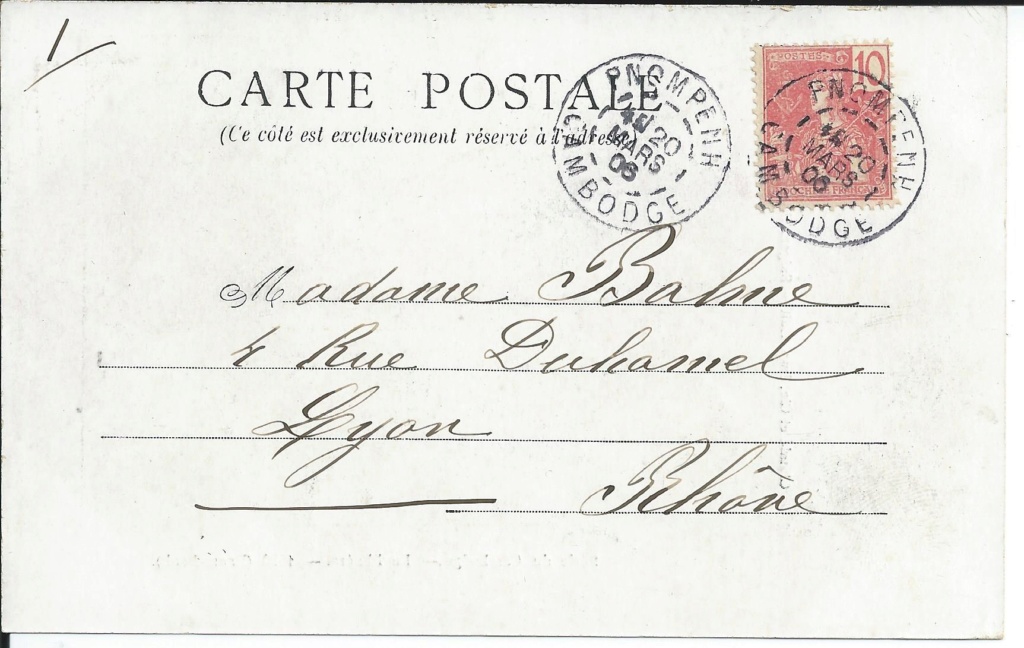 1
CARTE POSTALE
(Ce côté est exclusivement réservé à l'adresse)
PNOMPENH
20
MARS
06
CAMBODGE
POSTES
10
PNOMPENH
20
MARS
06
CAMBODGE
Madame Balme
4 Rue Duhamel
Lyon
Rhône